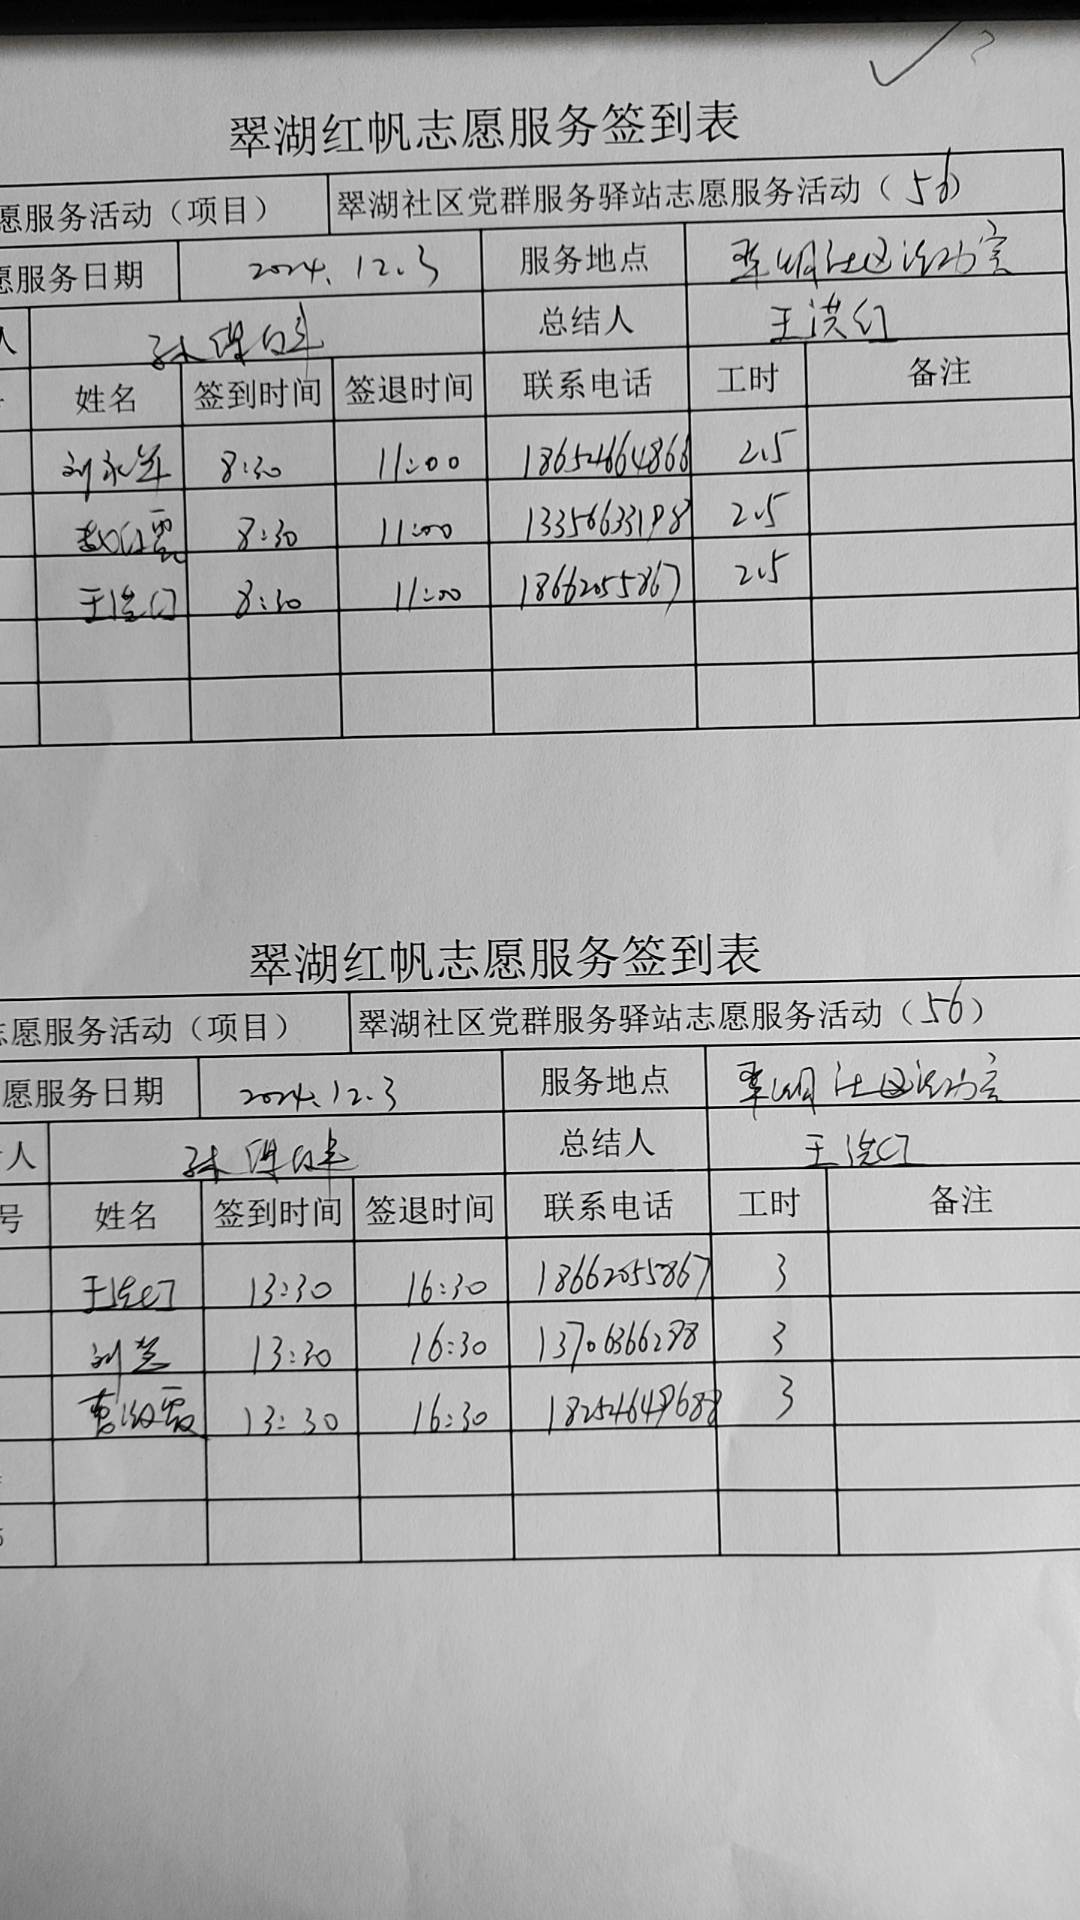 翠湖红帆志愿服务签到表
愿服务活动（项目） 翠湖社区党群服务驿站志愿服务活动（56）
愿服务日期 2024.12.3 服务地点 翠湖社区活动室
人 总结人 王洪红
姓名 签到时间 签退时间 联系电话 工时 备注
刘永华 8:30 11:00 186524664866 2.5
8:30 11:00 13356633198 2.5
王洪红 8:30 11:00 18662055867 2.5
翠湖红帆志愿服务签到表
志愿服务活动（项目） 翠湖社区党群服务驿站志愿服务活动（56）
愿服务日期 2024.12.3 服务地点 翠湖社区活动室
人 总结人 王洪红
号 姓名 签到时间 签退时间 联系电话 工时 备注
王洪红 13:30 16:30 18662055867 3
刘芝 13:30 16:30 13706366298 3
13:30 16:30 18254649688 3
5